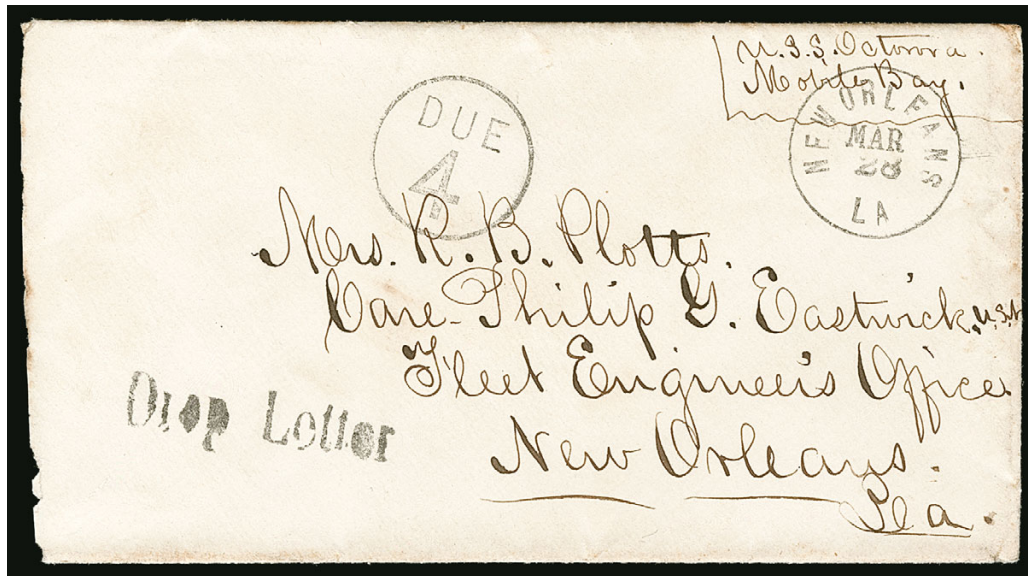 U.S.S. Octorora.
Mobile Bay.
DUE
4
NEW ORLEANS
MAR
28
LA
Mrs. R. B. Plotts.
Care Philip G. Eastwick, U.S.N
Fleet Engineers Office
Drop Letter
New Orleans.
La.